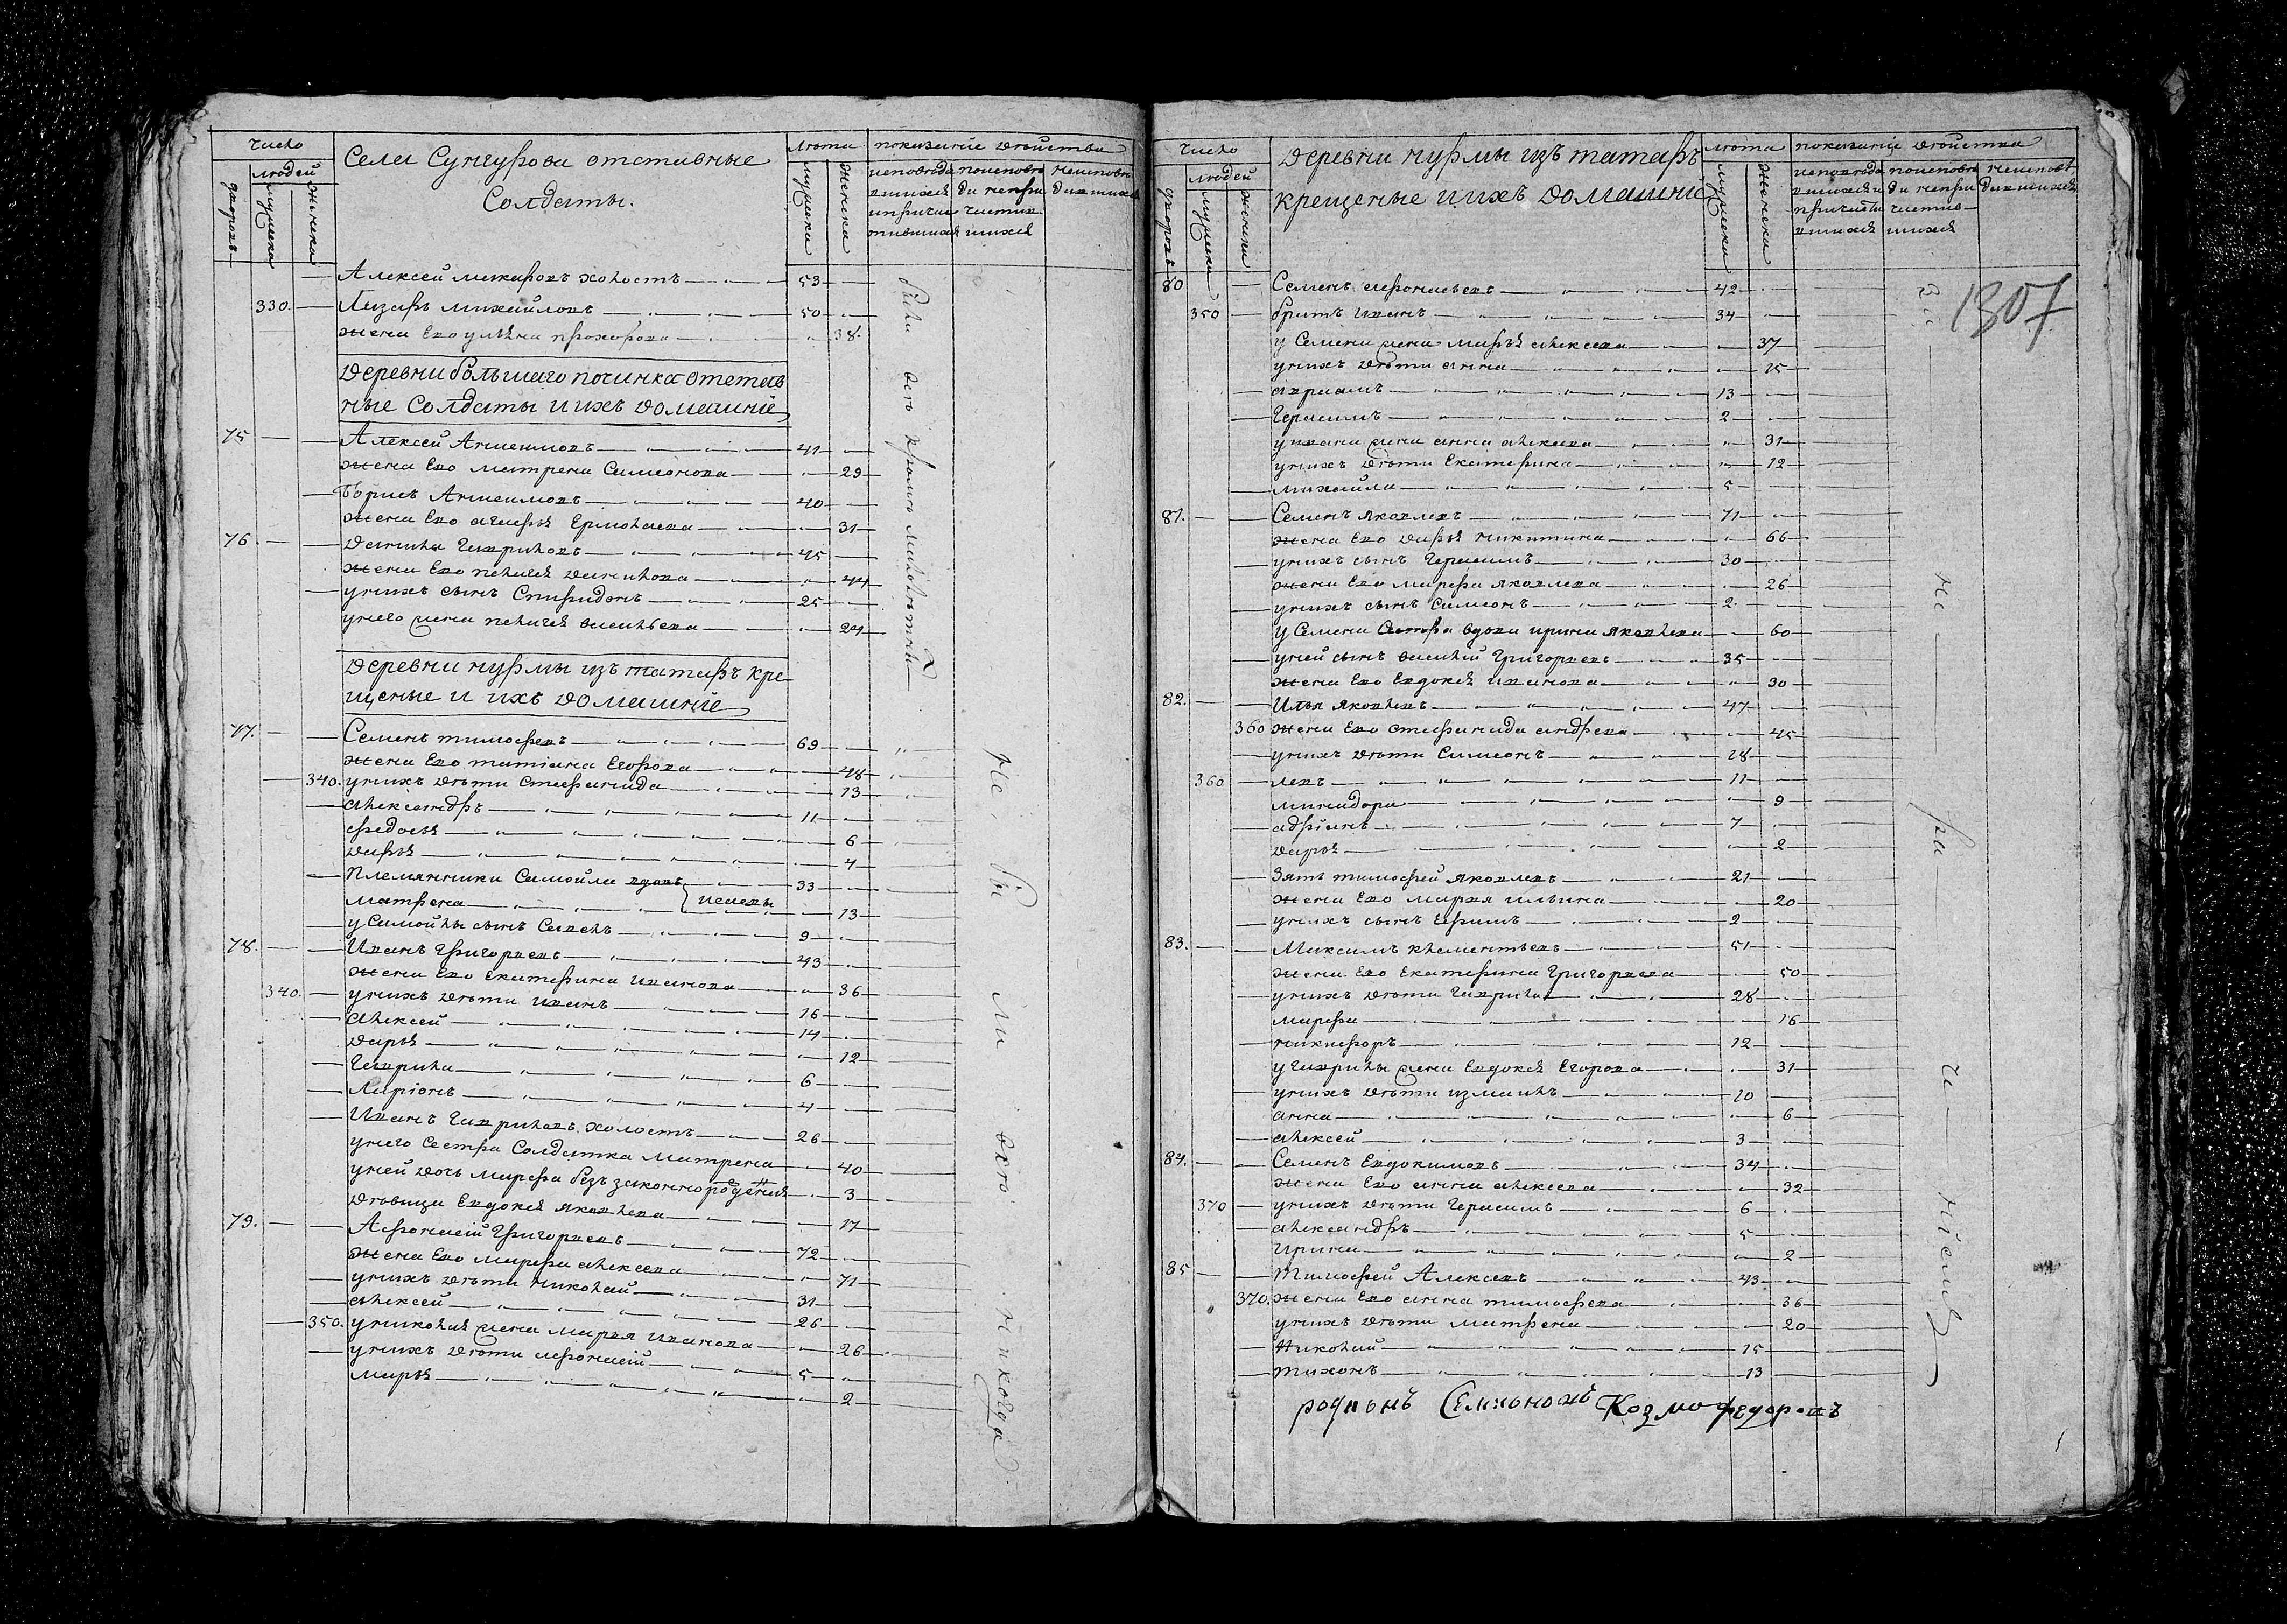 число
людей
дворовъ
мужеска
женска
Села Сунгурова отставные
Солдаты.
лѣта
мужеска
женска
показаніе двойства
исповѣда
вшихся
и причас
тившихся
по исповѣ
ди непри
частив
шихся
неисповѣ
давшихся
Алексей макаровъ холостъ 53
330. Лазарь михайловъ 50
жена Ево улѣяна прохорова 38
деревни большаго починка отстав
ные Солдаты и ихъ домашніе
75 Алексей Анисимовъ 41
жена Ево матрена Симеонова 29
Борисъ Анисимовъ 40
жена Ево агафья Ермолаева 31
76 данила Гавриловъ 45
жена Ево пелагея данилова 44
у нихъ сынъ Спиридонъ 25
у него жена пелагея васильева 24
деревни нурмы изъ татаръ кре
щеные и ихъ домашніе
77. Семенъ тимофеевъ 69
жена Ево татіана Егорова 48
340. у нихъ дѣти Стефанида 13
александръ 11
федосья 6
дарья 4
Племянники Самойла вдовъ 33
матрена 13
у Самойлы сынъ Савелъ 9
78. Иванъ Григорьевъ 43
жена Ево екатерина иванова 36
340. у нихъ дѣти иванъ 16
алексей 14
дарья 12
Гаврила 6
Ларіонъ 4
Иванъ Гавриловъ холостъ 26
у него Сестра Солдатка матрена 40
у ней дочь марфа безъ законнорожденная 3
дѣвица Евдокея яковлева 17
79. Афонасій Григорьевъ 72
жена Ево марфа алексеева 71
у нихъ дѣти николай 31
алексей 26
350. у николая жена марья иванова 26
у нихъ дѣти афонасій 5
марья 2
были всѣ кромѣ малолѣтнихъ
не бы ли всѣ никогда
число
людей
дворовъ
мужеска
женска
деревни нурмы изъ татаръ
крещеные и ихъ домашніе
лѣта
мужеска
женска
показаніе двойства
исповѣда
вшихся и
причасти
вшихся
по исповѣ
ди непри
частив
шихся
неисповѣ
давшихся
1307
80 Семенъ афонасьевъ 42
350 братъ иванъ 34
у Семена жена марья алексеева 37
у нихъ дѣти анна 15
авраамъ 13
Герасимъ 2
у ивана жена анна алексеева 31
у нихъ дѣти Екатерина 12
михайла 5
81. Семенъ яковлевъ 71
жена Ево дарья никитина 66
у нихъ сынъ Герасимъ 30
жена Ево марфа яковлева 26
у нихъ сынъ Симеонъ 2
у Семена Сестра вдова ирина яковлева 60
у ней сынъ василей Григорьевъ 35
жена Ево Евдокея иванова 30
82. Илья яковлевъ 47
360 жена Ево стефанида андреева 45
у нихъ дѣти Симеонъ 18
360 левъ 11
минадора 9
адріанъ 7
дарья 2
Зять тимофей яковлевъ 21
жена Ево марья ильина 20
у нихъ сынъ Ефимъ 2
83. Максимъ клементьевъ 51
жена Ево Екатерина Григорьева 50
у нихъ дѣти Гаврила 28
марфа 16
никифоръ 12
у Гаврилы жена Евдокея Егорова 31
у нихъ дѣти измаилъ 10
анна 6
алексей 3
84. Семенъ Евдокимовъ 34
жена Ево анна алексеева 32
370 у нихъ дѣти Герасимъ 6
александръ 5
Ирина 2
85 Тимофей Алексеевъ 43
370. жена Ево анна тимофеева 36
у нихъ дѣти матрена 20
Николай 15
тихонъ 13
родионъ Семионовъ Козма федоровъ